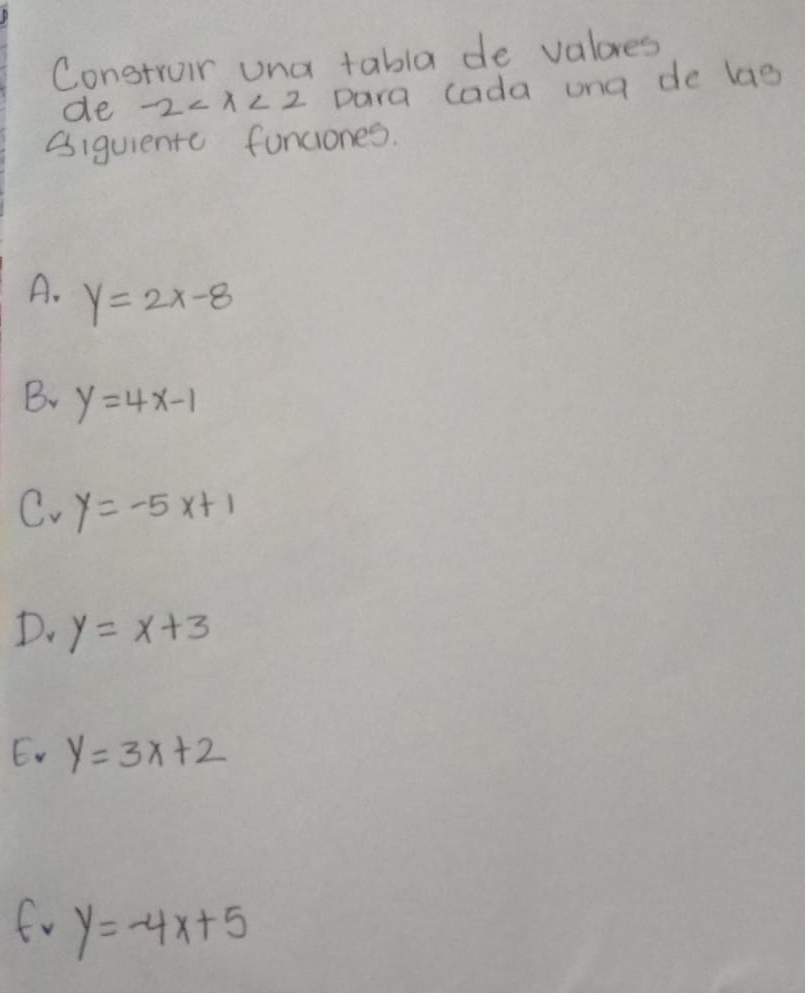 Construir una tabla de valores
de -2 < x < 2 para cada una de las
Siguiente funciones.
A. y = 2x-8
B. y =4x-1
C. y = -5x+1
D. y = x+3
E. y = 3x+2
F. y = -4x+5